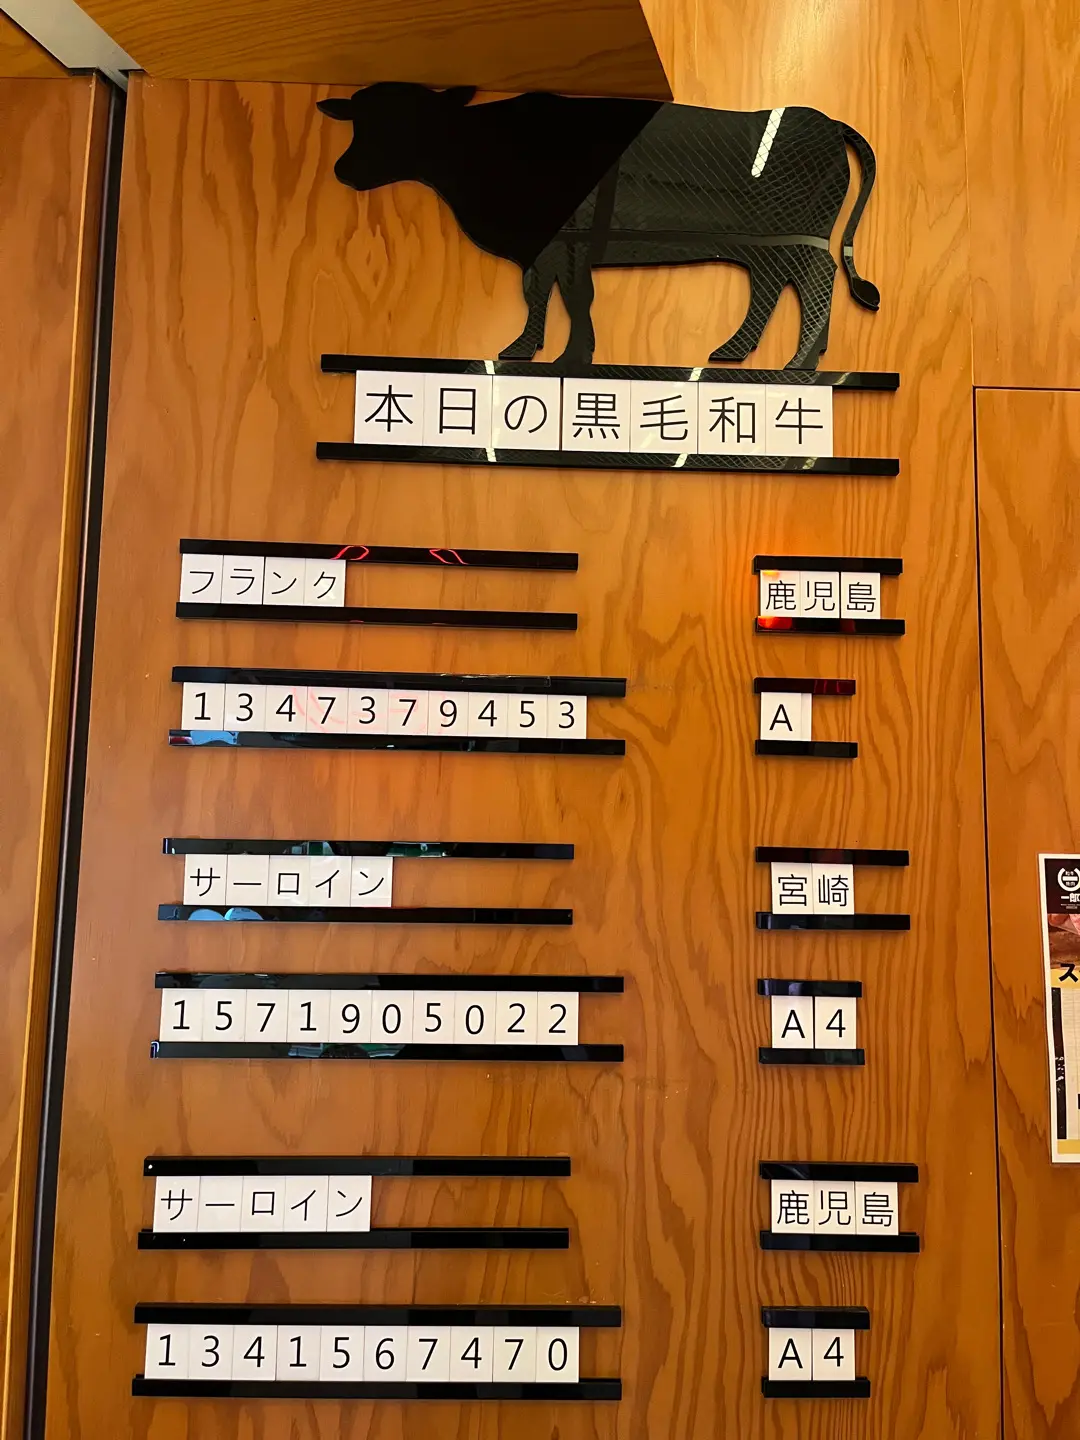 本日の黒毛和牛
フランク 鹿児島
1347379453 A
サーロイン 宮崎
1571905022 A4
サーロイン 鹿児島
1341567470 A4
ス